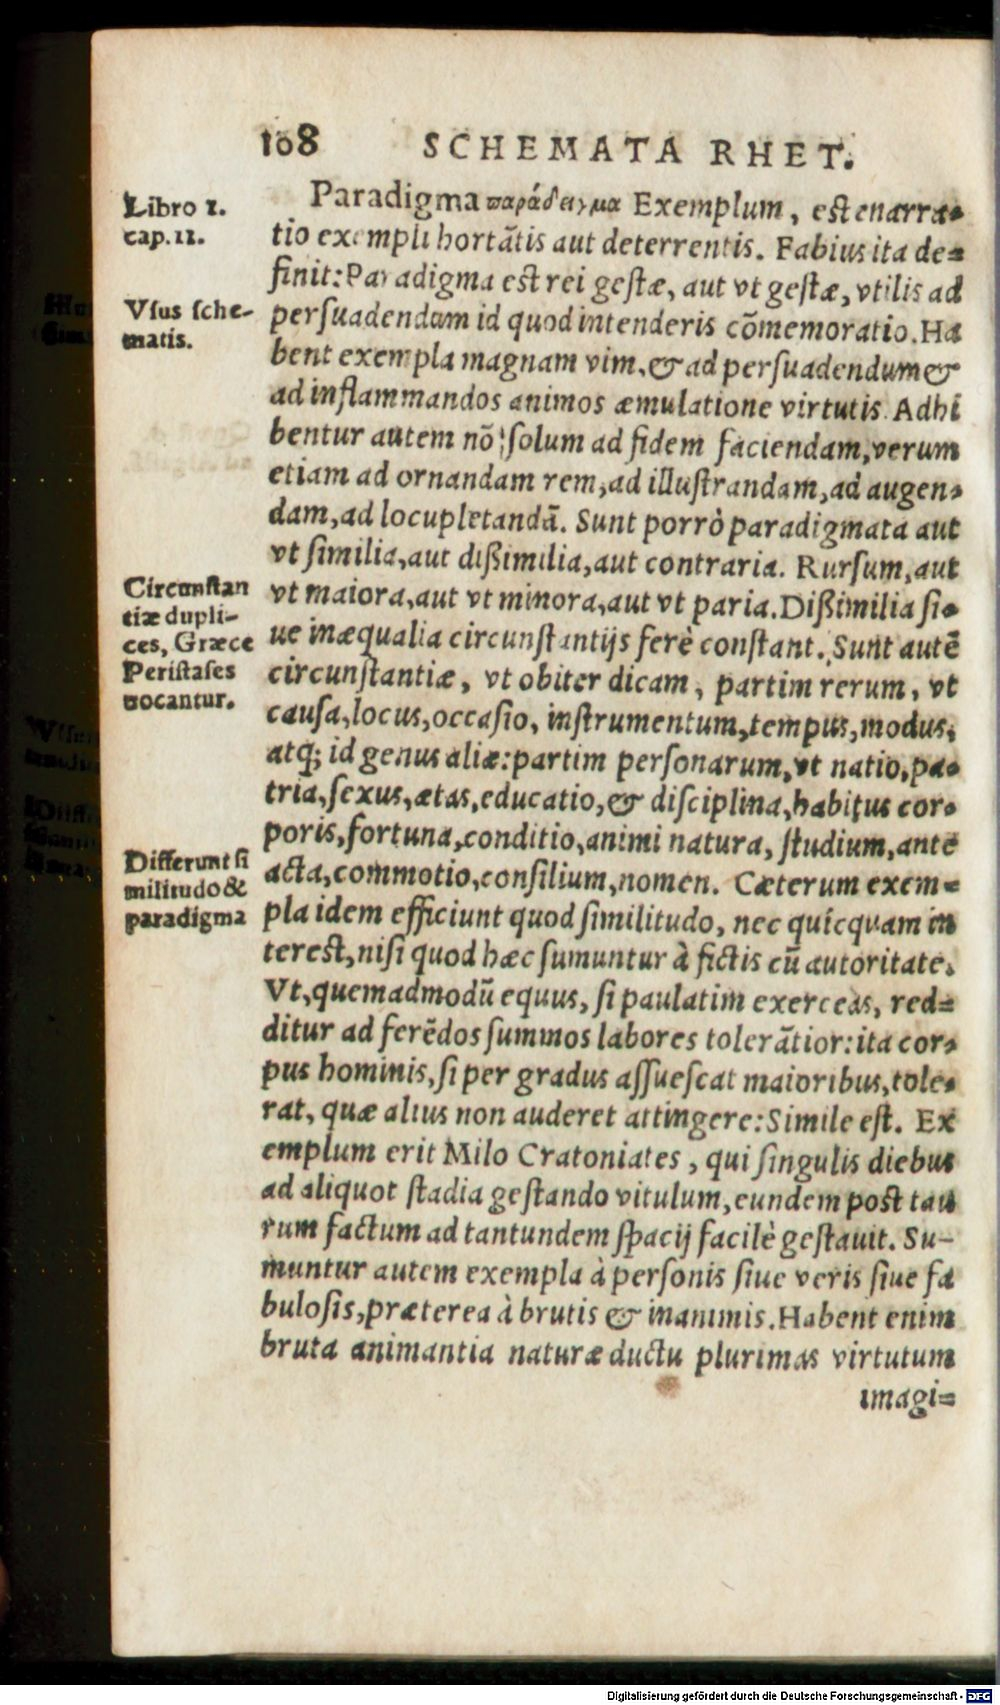 108 SCHEMATA RHET.
Libro 1.
cap. 11.
Vſus ſche-
matis.
Circunſtan
tiæ dupli-
ces, Græce
Periſtaſes
uocantur.
Differunt ſi
militudo &
paradigma
Paradigma παράδειγμα Exemplum, eſt enarra-
tio exempli hortātis aut deterrentis. Fabius ita de-
finit: Paradigma eſt rei geſtæ, aut vt geſtæ, vtilis ad
perſuadendum id quod intenderis cōmemoratio. Ha
bent exempla magnam vim, & ad perſuadendum &
ad inflammandos animos æmulatione virtutis. Adhi
bentur autem nō ſolum ad fidem faciendam, verum
etiam ad ornandam rem, ad illuſtrandam, ad augen-
dam, ad locupletandā. Sunt porrò paradigmata aut
vt ſimilia, aut dißimilia, aut contraria. Rurſum, aut
vt maiora, aut vt minora, aut vt paria. Dißimilia ſi-
ue inæqualia circunſtantijs ferè conſtant. Sunt autē
circunſtantiæ, vt obiter dicam, partim rerum, vt
cauſa, locus, occaſio, inſtrumentum, tempus, modus,
atq; id genus aliæ: partim perſonarum, vt natio, pa-
tria, ſexus, ætas, educatio, & diſciplina, habitus cor-
poris, fortuna, conditio, animi natura, ſtudium, antē
acta, commotio, conſilium, nomen. Cæterum exem-
pla idem efficiunt quod ſimilitudo, nec quicquam in
tereſt, niſi quod hæc ſumuntur à fictis cū autoritate.
Vt, quemadmodū equus, ſi paulatim exerceas, red-
ditur ad ferēdos ſummos labores tolerātior: ita cor-
pus hominis, ſi per gradus aſſueſcat maioribus, tole-
rat, quæ alius non auderet attingere: Simile eſt. Ex
emplum erit Milo Cratoniates, qui ſingulis diebus
ad aliquot ſtadia geſtando vitulum, eundem poſt tau
rum factum ad tantundem ſpacij facilè geſtauit. Su-
muntur autem exempla à perſonis ſiue veris ſiue fa
buloſis, præterea à brutis & inanimis. Habent enim
bruta animantia naturæ ductu plurimas virtutum
imagi-
Digitalisierung gefördert durch die Deutsche Forschungsgemeinschaft - DFG